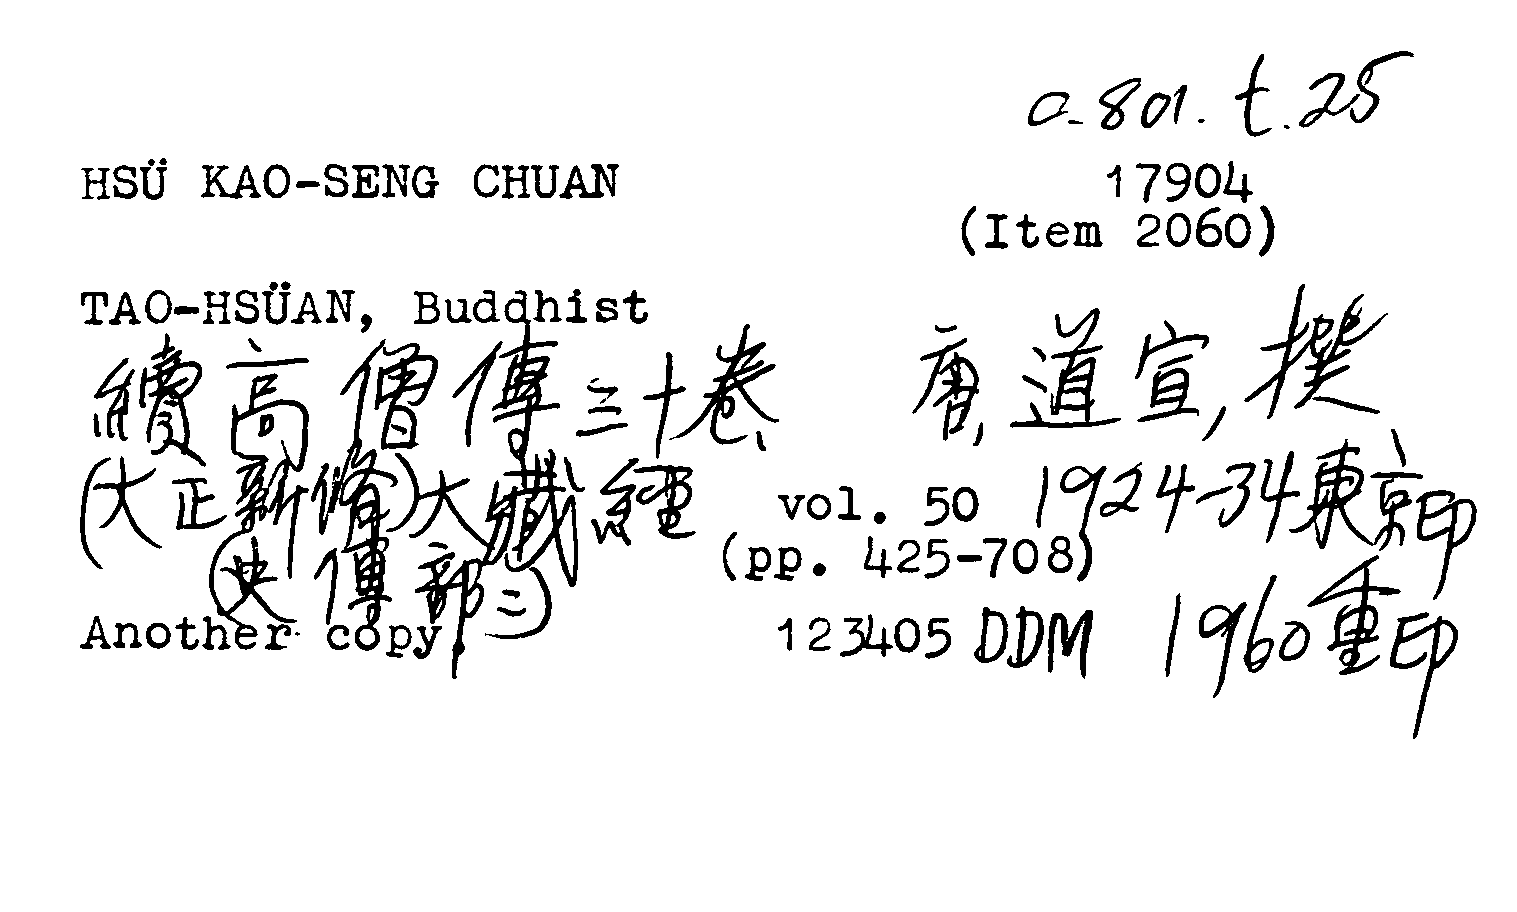 c.801.t.25
HSÜ KAO-SENG CHUAN 17904
(Item 2060)
TAO-HSÜAN, Buddhist
續高僧傳三十卷 唐,道宣,撰
(大正新脩)大藏經 vol. 50 1924-34東京印
(史傳部二) (pp. 425-708)
Another copy. 123405 DDM 1960重印